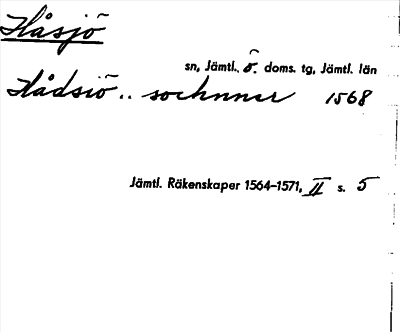 Håsjö
sn, Jämtl. ö. doms. tg, Jämtl. län
Hådsiö .. sochnner 1568
Jämtl. Räkenskaper 1564-1571, II s. 5